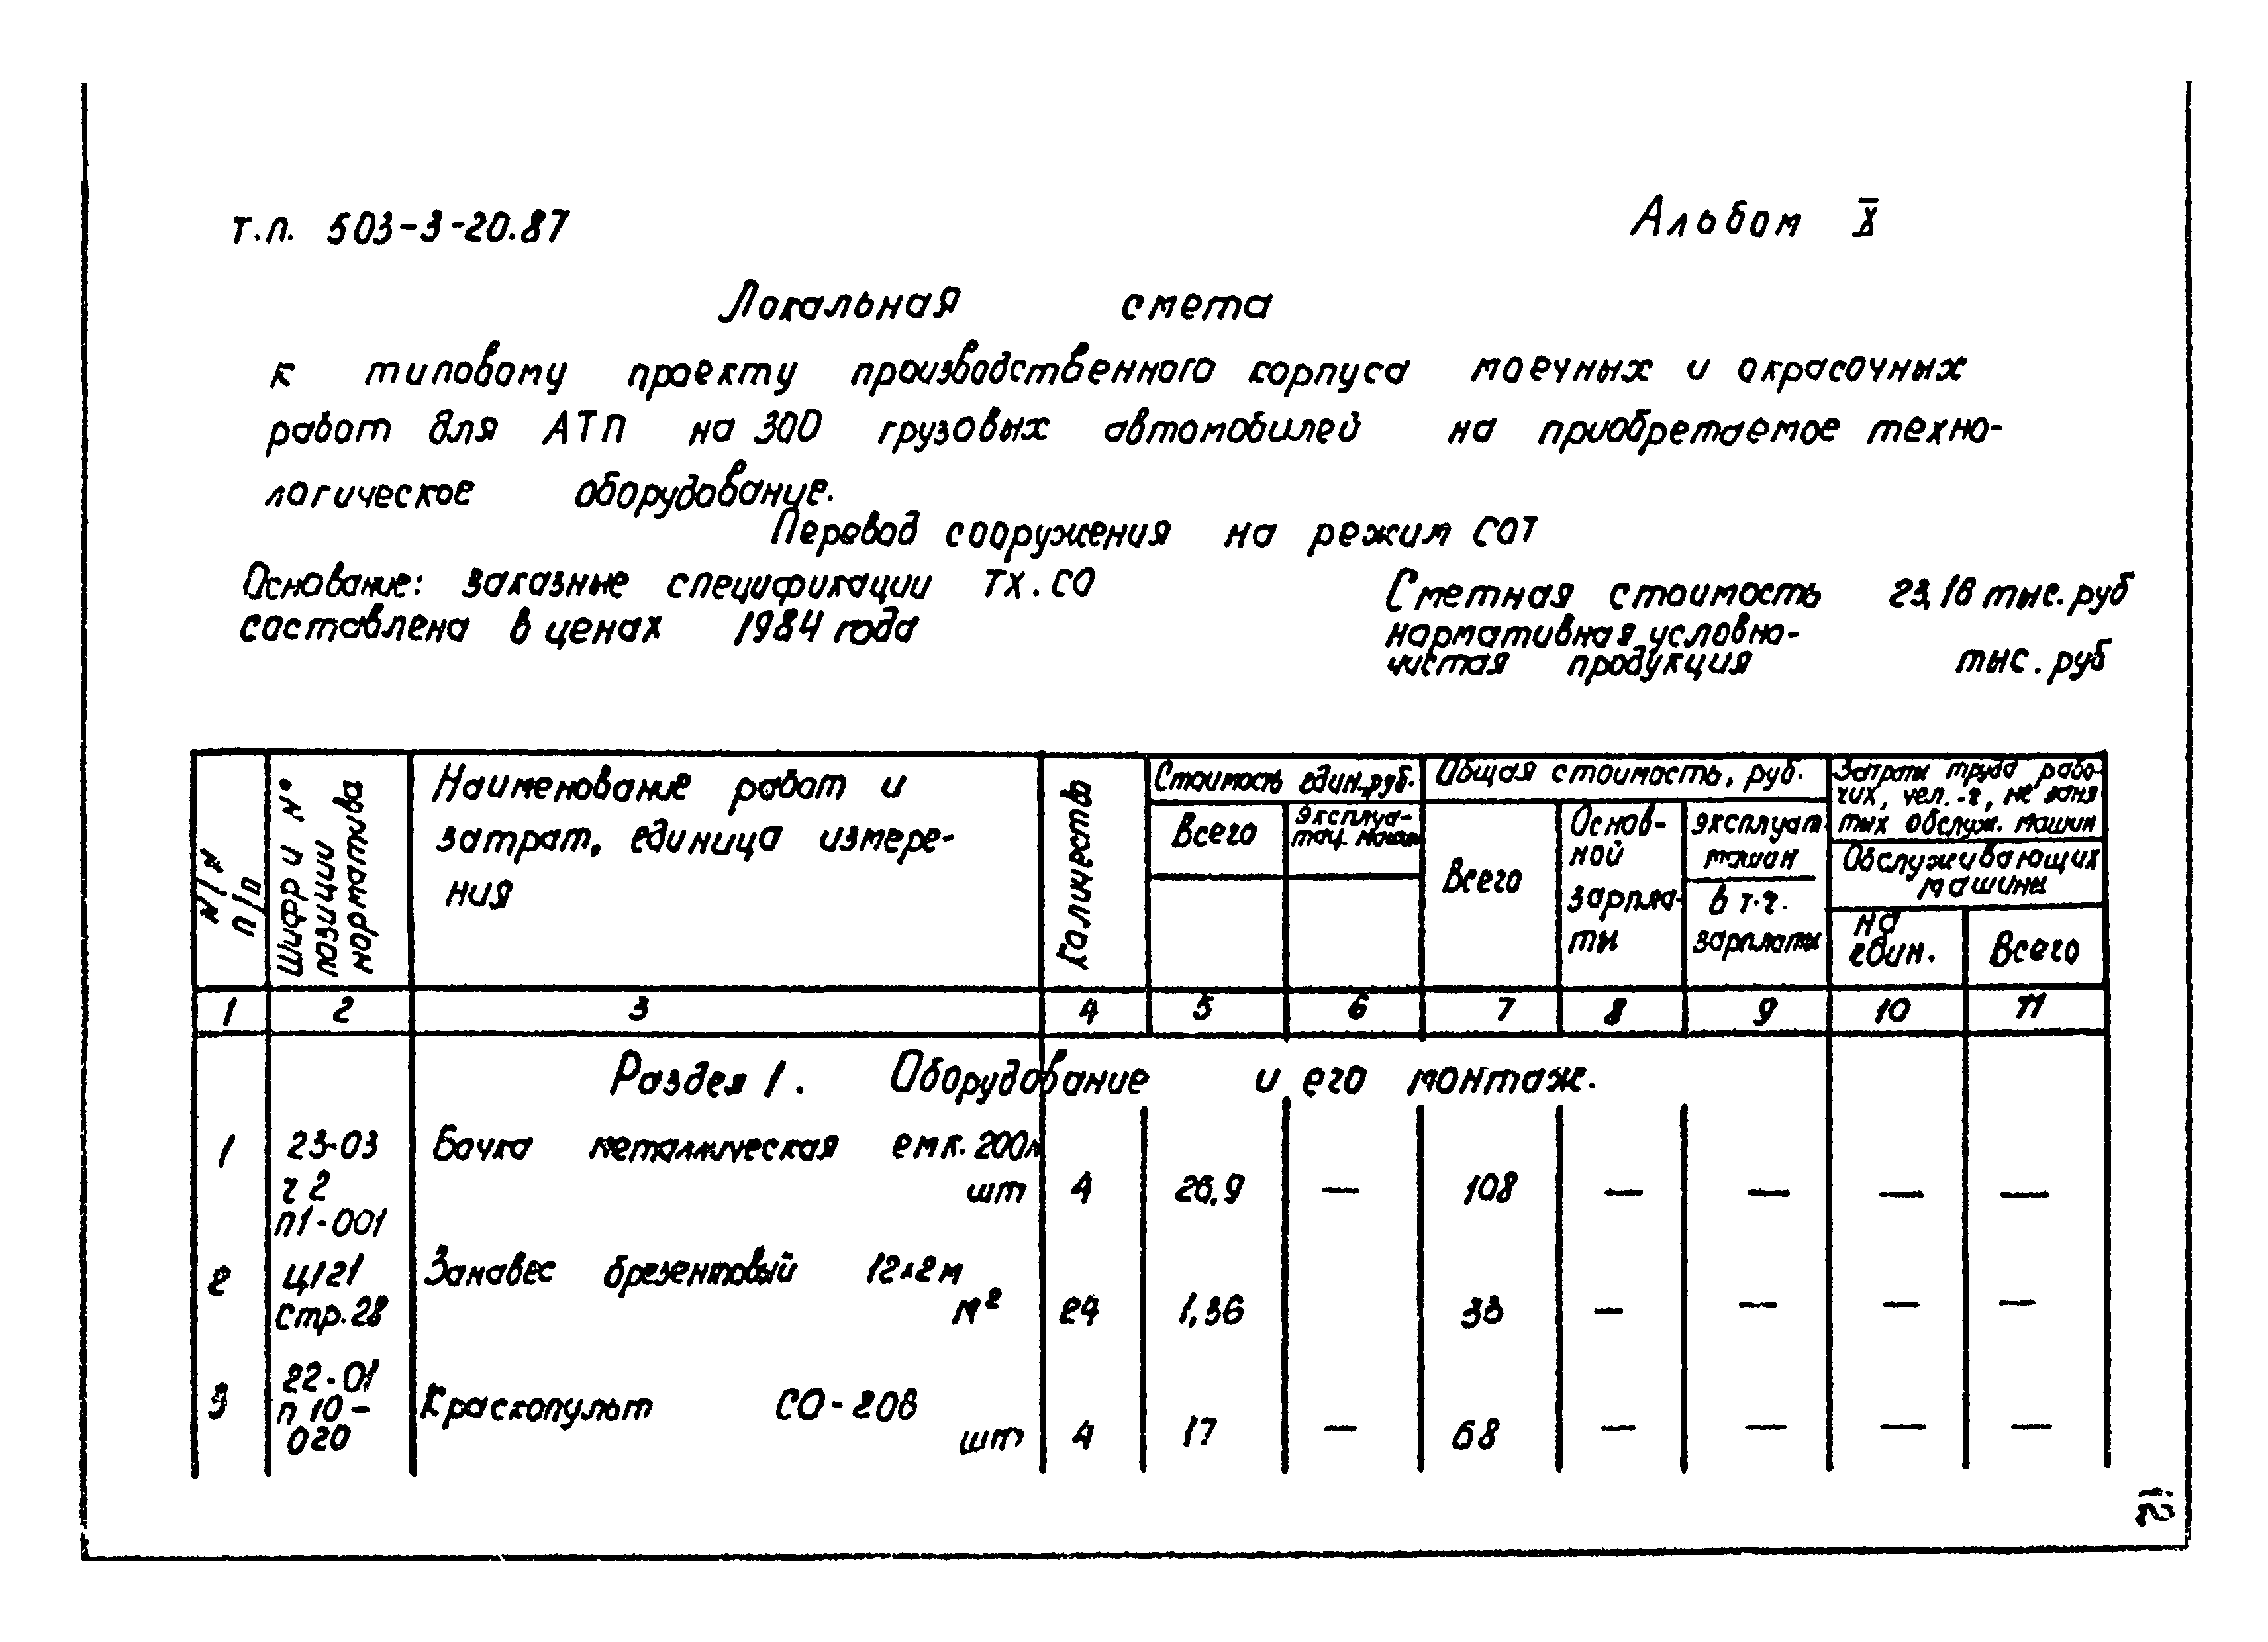 т.п. 503-3-20.87
Альбом X
Локальная смета
к типовому проекту производственного корпуса моечных и окрасочных
работ для АТП на 300 грузовых автомобилей на приобретаемое техно-
логическое оборудование.
Перевод сооружения на режим СОТ
Основание: заказные спецификации ТХ.СО
составлена в ценах 1984 года
Сметная стоимость 23,18 тыс.руб
нормативная условно-
чистая продукция тыс.руб
N/N п/п
Шифр и N° позиции норматива
Наименование работ и
затрат, единица измере-
ния
Количество
Стоимость един.,руб.
Всего
эксплуа-
тац. машин
Общая стоимость, руб.
Всего
Основ-
ной
зарпла-
ты
эксплуат.
машин
в т.ч.
зарплаты
Затраты труда рабо-
чих, чел.-ч, не заня
тых обслуж. машин
Обслуживающих
машины
на
един.
Всего
1 2 3 4 5 6 7 8 9 10 11
Раздел 1. Оборудование и его монтаж.
1 23-03 Бочка металлическая емк. 200л
ч 2 шт 4 26,9 — 108 — — — —
п1-001
2 Ц121 Занавес брезентовый 12х2м
стр.28 м² 24 1,36 33 — — — —
3 22-01
п 10- Краскопульт СО-20В
020 шт 4 17 — 68 — — — —
12